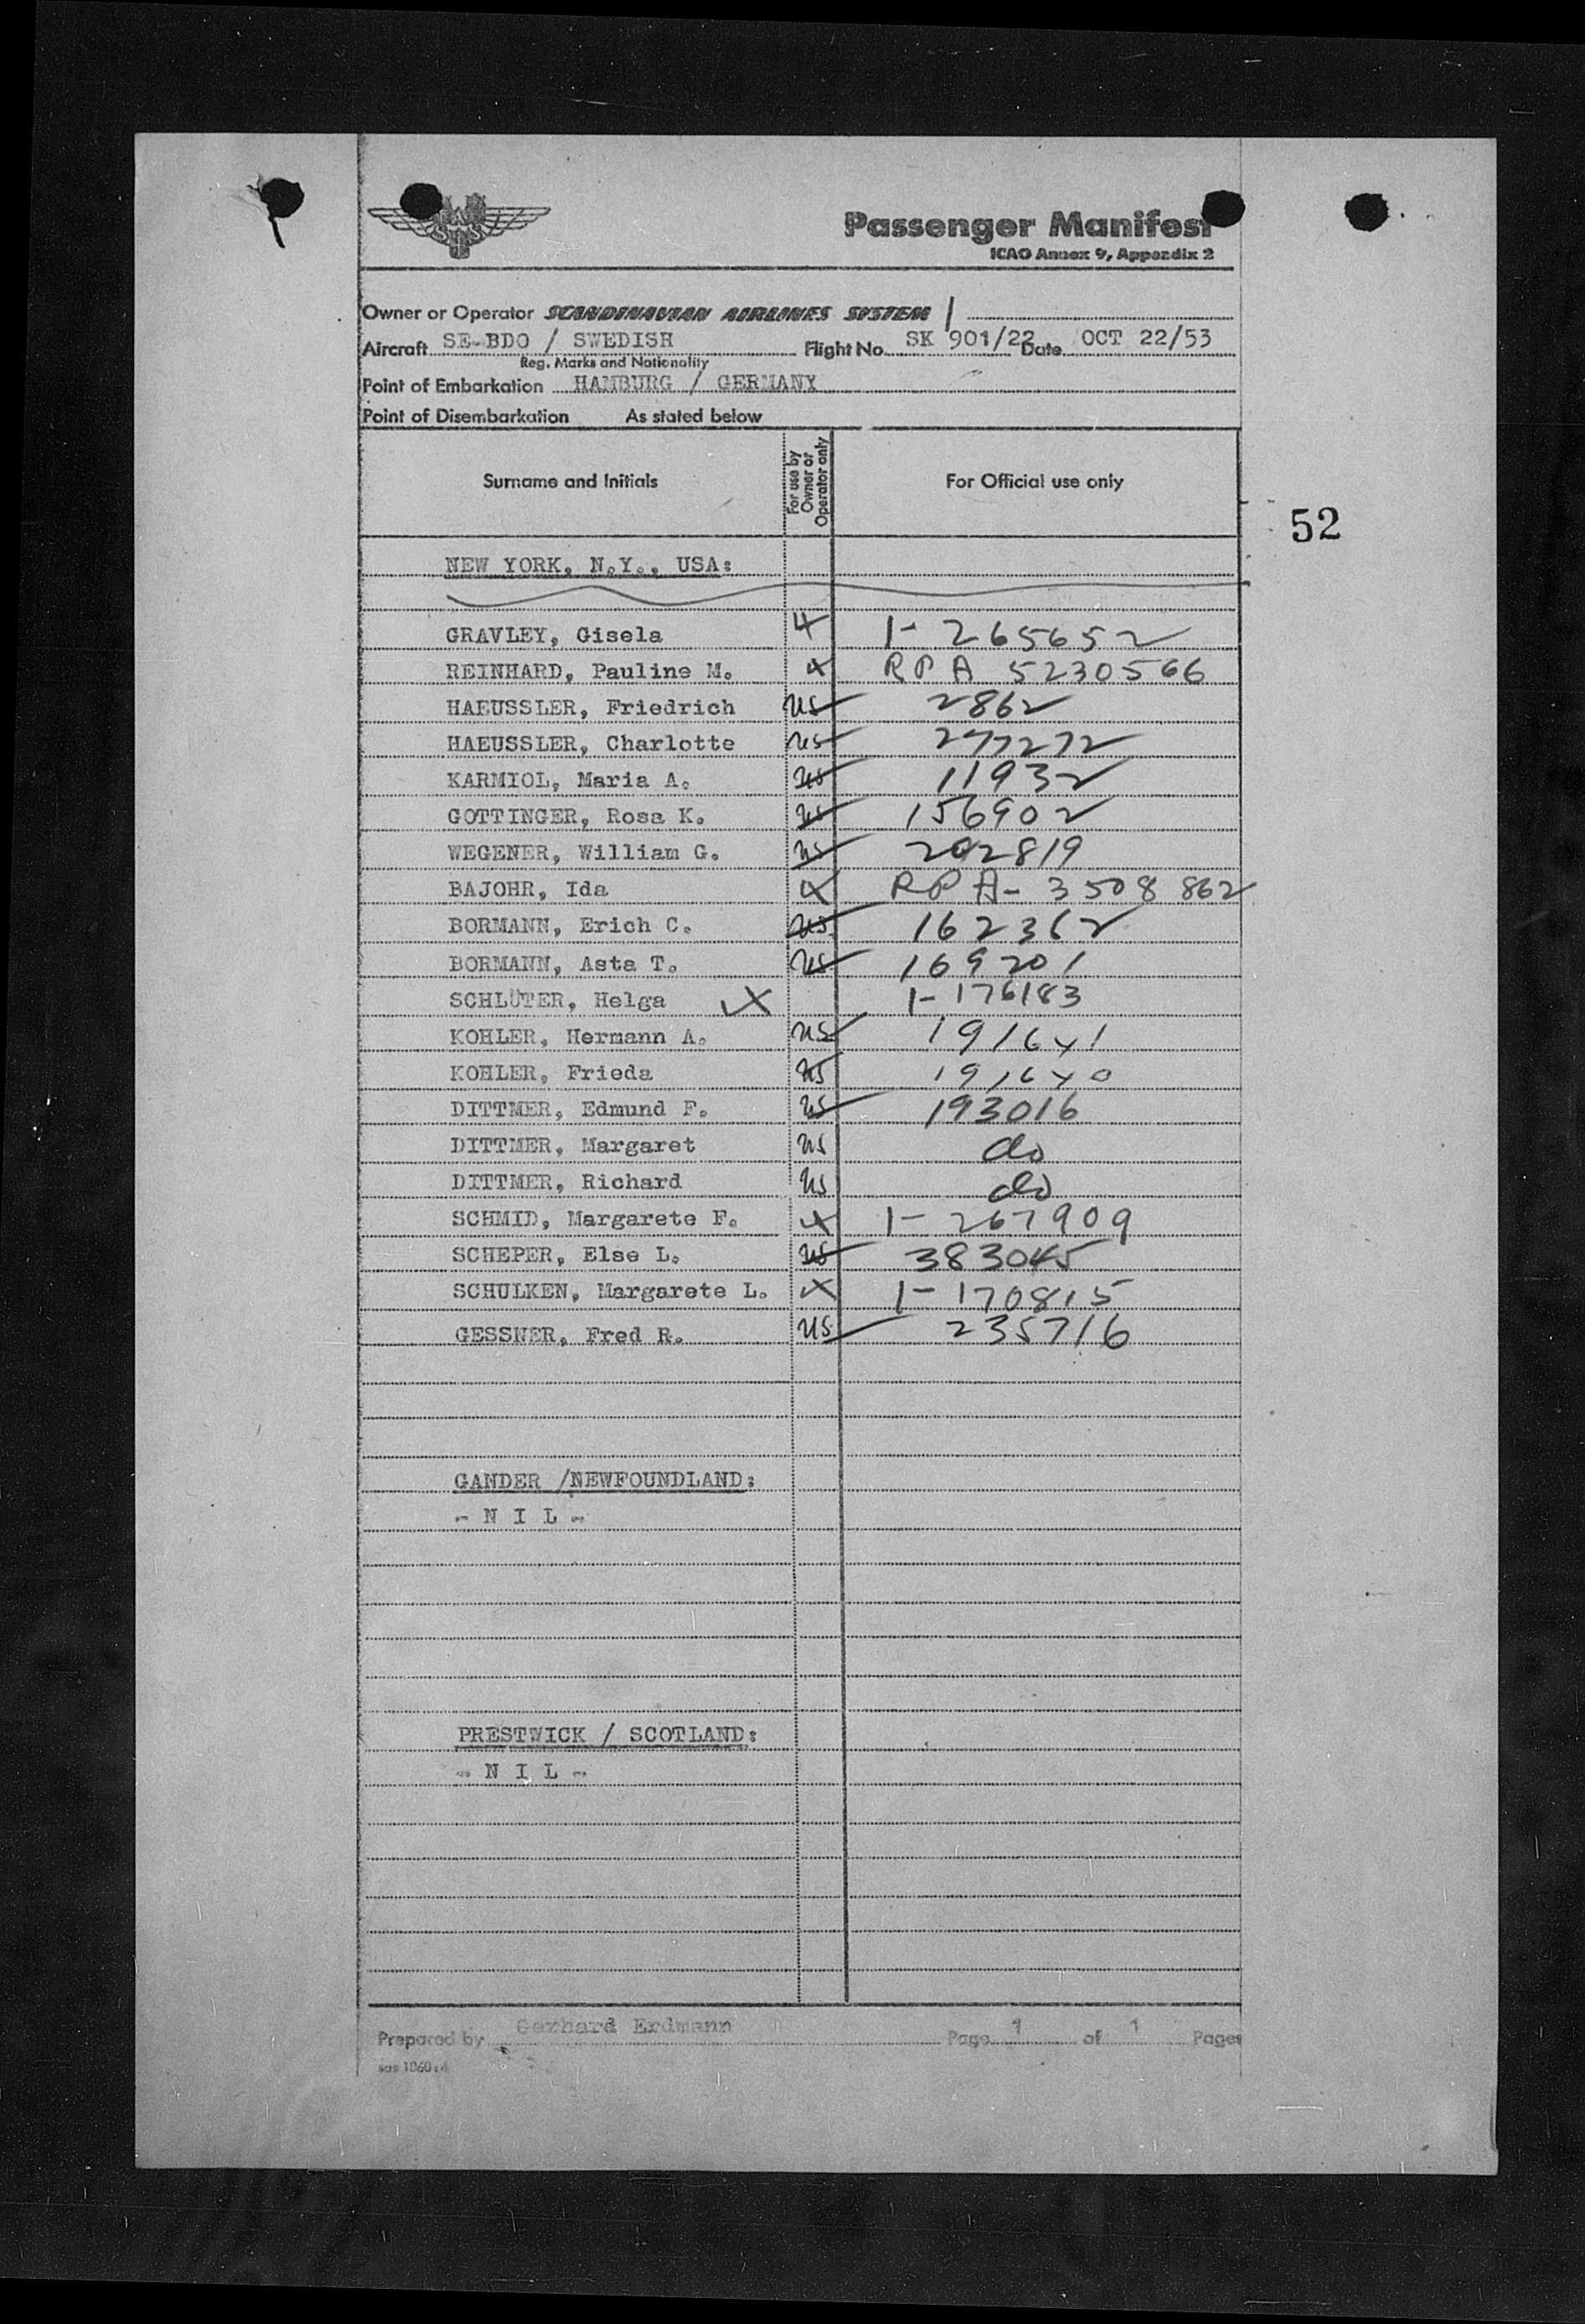 SAS
Passenger Manifest
ICAO Annex 9, Appendix 2
Owner or Operator SCANDINAVIAN AIRLINES SYSTEM
Aircraft SE-BDO / SWEDISH Flight No. SK 901/22 Date OCT 22/53
Reg. Marks and Nationality
Point of Embarkation HAMBURG / GERMANY
Point of Disembarkation As stated below
Surname and Initials For use by Owner or Operator only For Official use only
52
NEW YORK, N.Y., USA:
GRAVLEY, Gisela 1-265652
REINHARD, Pauline M. x RPA 5230566
HAEUSSLER, Friedrich US 2862
HAEUSSLER, Charlotte US 277272
KARMIOL, Maria A. US 11932
GOTTINGER, Rosa K. US 156902
WEGENER, William G. US 202819
BAJOHR, Ida x RPA-3508862
BORMANN, Erich C. US 162362
BORMANN, Asta T. US 169201
SCHLÜTER, Helga X 1-176183
KOHLER, Hermann A. US 191641
KOHLER, Frieda US 191640
DITTMER, Edmund F. US 193016
DITTMER, Margaret US do
DITTMER, Richard US do
SCHMID, Margarete F. x 1-267909
SCHEPER, Else L. US 383045
SCHULKEN, Margarete L. x 1-170815
GESSNER, Fred R. US 235716
GANDER /NEWFOUNDLAND:
- N I L -
PRESTWICK / SCOTLAND:
- N I L -
Prepared by Gerhard Erdmann Page 1 of 1 Pages
sas 1060:4